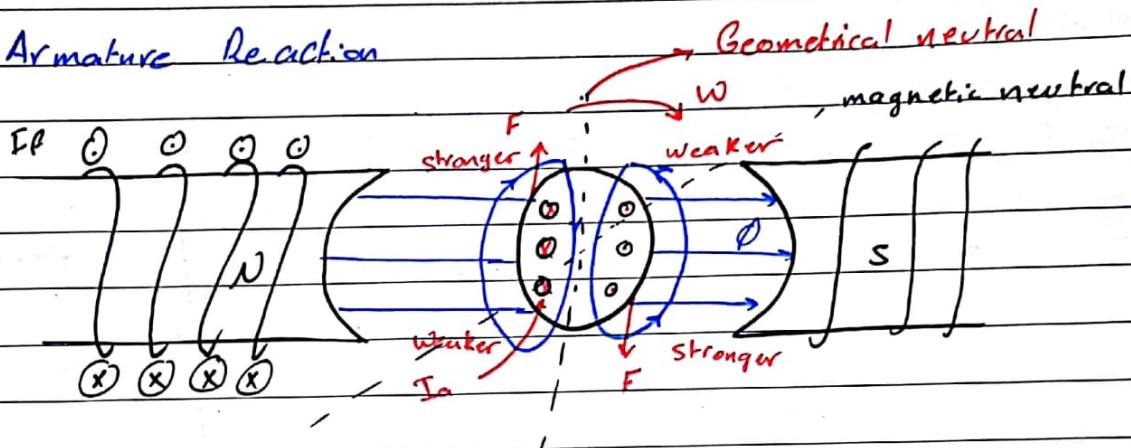 Armature Reaction
Geometrical neutral
W
magnetic neutral
If
F
stronger
weaker
N
Ø
S
weaker
stronger
Ia
F